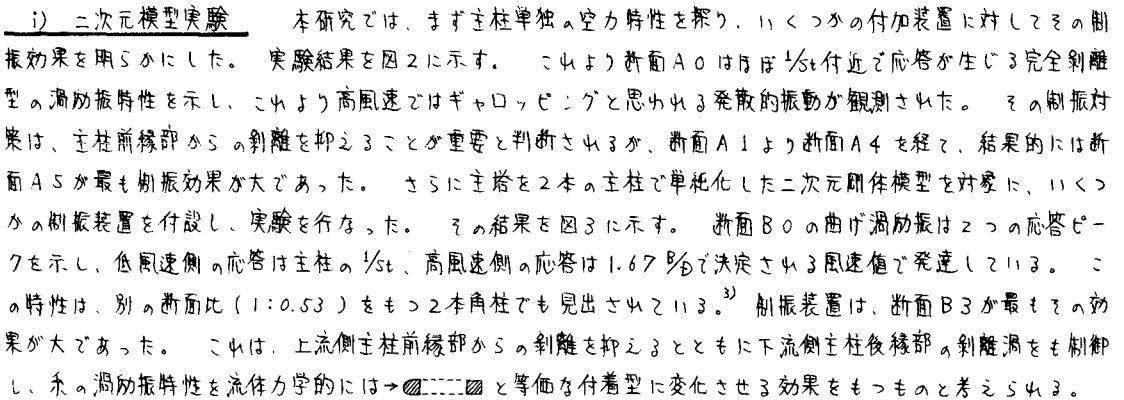 i) 二次元模型実験　本研究では、まず主柱単独の空力特性を探り、いくつかの付加装置に対してその制
振効果を明らかにした。 実験結果を図2に示す。 これより断面A0はほぼ1/St付近で応答が生じる完全剥離
型の渦励振特性を示し、これより高風速ではギャロッピングと思われる発散的振動が観測された。 その制振対
策は、主柱前縁部からの剥離を抑えることが重要と判断されるが、断面A1より断面A4を経て、結果的には断
面A5が最も制振効果が大であった。 さらに主塔を2本の主柱で単純化した二次元剛体模型を対象に、いくつ
かの制振装置を付設し、実験を行なった。 その結果を図3に示す。 断面B0の曲げ渦励振は2つの応答ピー
クを示し、低風速側の応答は主柱の1/St、高風速側の応答は1.67 B/Dで決定される風速値で発達している。 こ
の特性は、別の断面比(1:0.53)をもつ2本角柱でも見出されている。3) 制振装置は、断面B3が最もその効
果が大であった。 これは、上流側主柱前縁部からの剥離を抑えるとともに下流側主柱後縁部の剥離渦をも制御
し、系の渦励振特性を流体力学的には→ と等価な付着型に変化させる効果をもつものと考えられる。